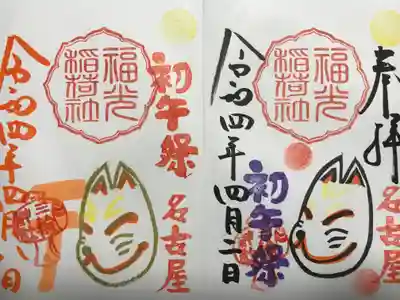 奉拝
名古屋
福光
稲荷社
初午祭
令和四年四月二日
初午祭
名古屋
福光
稲荷社
令和四年四月